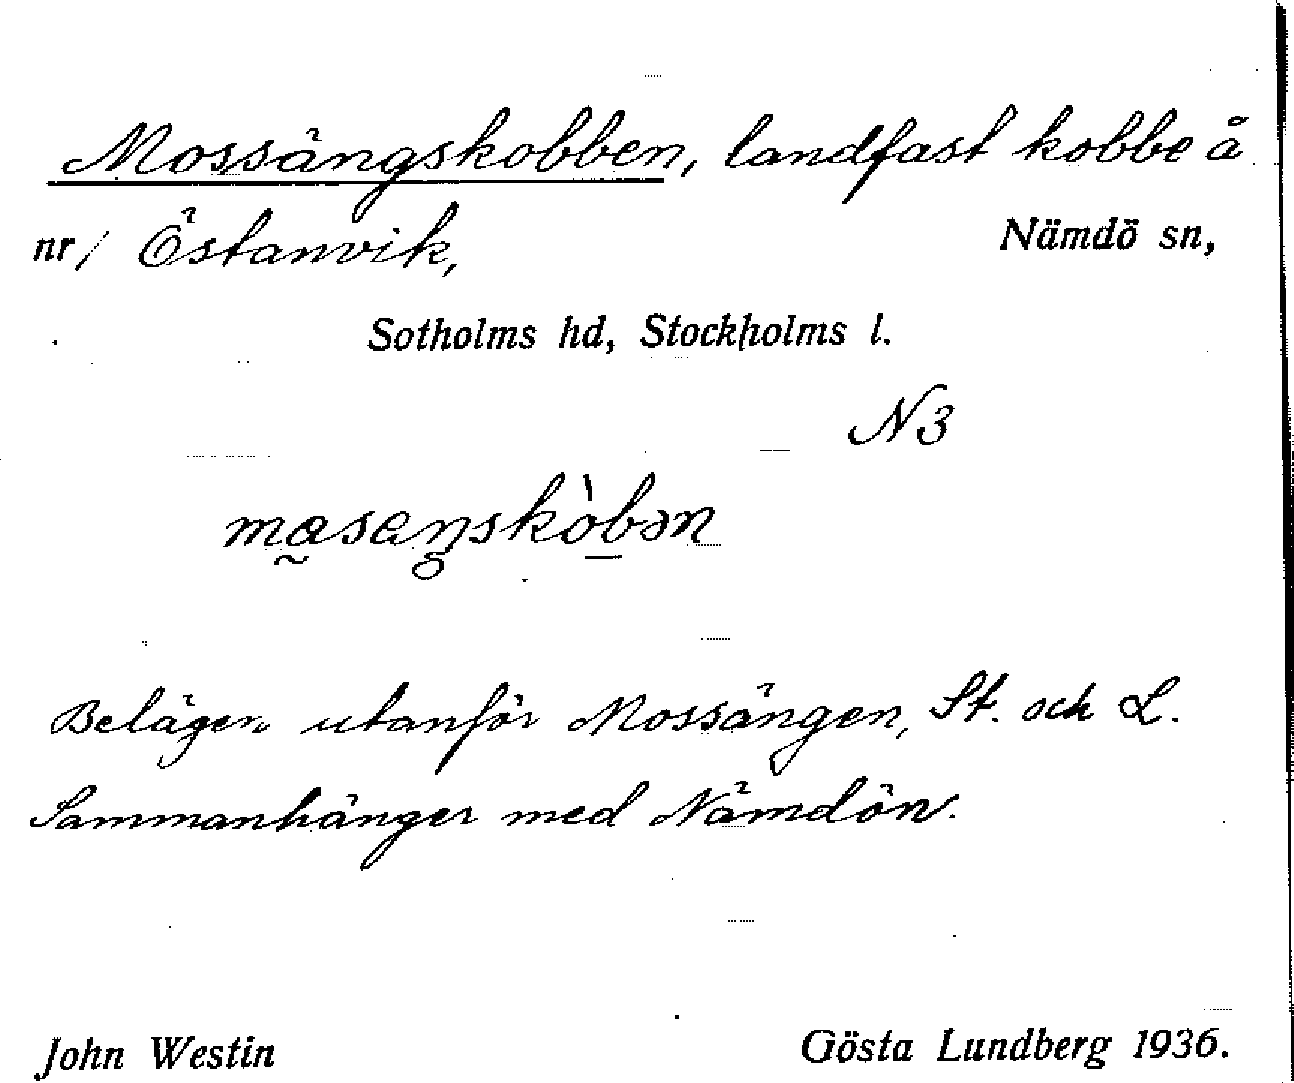 Mossängskobben, landfast kobbe å
nr/ Östanvik, Nämdö sn,
Sotholms hd, Stockholms l.
N3
Belägen utanför Mossängen, St. och L.
Sammanhänger med Nämdön.
John Westin Gösta Lundberg 1936.